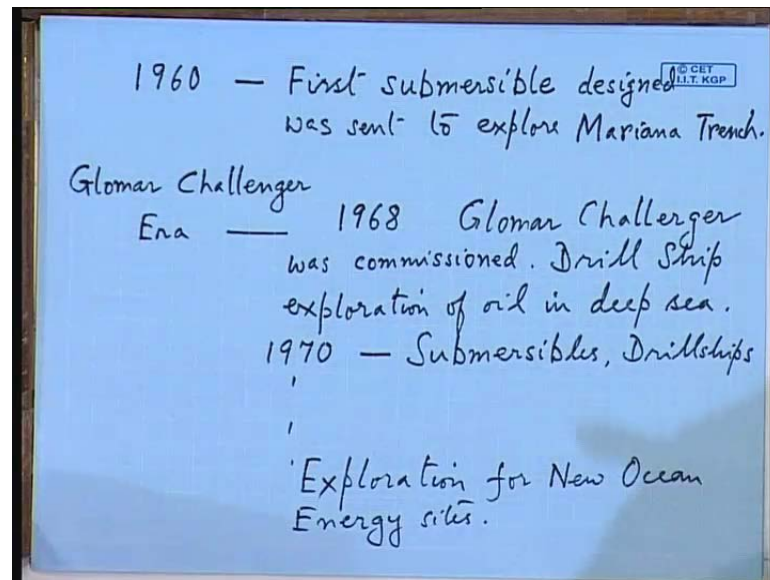 1960 — First submersible designed
© CET
I.I.T. KGP
was sent to explore Mariana Trench.
Glomar Challenger
Era — 1968 Glomar Challenger
was commissioned. Drill Ship
exploration of oil in deep sea.
1970 — Submersibles, Drillships
Exploration for New Ocean
Energy sites.